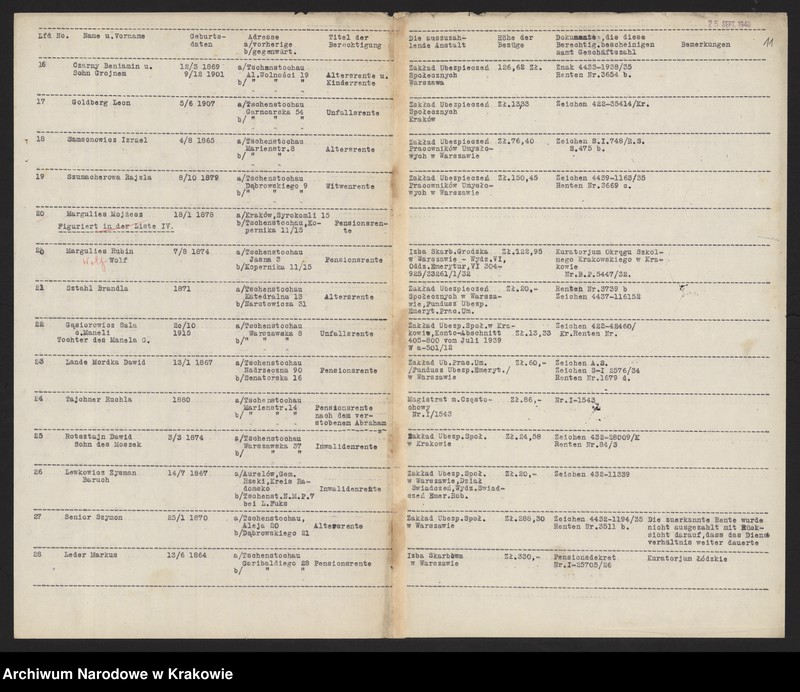 25 SEPT. 1940
11
Lfd No. Name u.Vorname Geburts- Adresse Titel der Die auszuzah- Höhe der Dokumente,die diese
daten a/vorherige Berechtigung lende Anstalt Bezüge Berechtig.bescheinigen Bemerkungen
b/gegenwärt. samt Geschäftszahl
16 Czarny Beniamin u. 12/3 1869 a/Tschenstochau Zakład Ubezpieczeń 126,62 Zł. Znak 4433-1938/35
Sohn Grojnem 9/12 1901 Al.Wolności 19 Altersrente u. Społecznych Renten Nr.3654 b.
b/ " " " Kinderrente Warszawa
17 Goldberg Leon 5/6 1907 a/Tschenstochau Zakład Ubezpieczeń Zł.13,33 Zeichen 422-35414/Kr.
Garncarska 54 Unfallsrente Społecznych
b/ " " Kraków
18 Samsonowicz Izrael 4/8 1865 a/Tschenstochau Zakład Ubezpieczeń Zł.76,40 Zeichen S.I.748/R.S.
Marienstr.8 Altersrente Pracowników Umysło- S.475 b.
b/ " " wych w Warszawie
19 Szumacherowa Rajzla 8/10 1879 a/Tschenstochau Zakład Ubezpieczeń Zł.150,45 Zeichen 4439-1163/35
Dąbrowskiego 9 Witwenrente Pracowników Umysło- Renten Nr.3669 c.
b/" " " wych w Warszawie
20 Margulies Mojżesz 18/1 1878 a/Kraków,Syrokomli 15
Figuriert in der Liste IV. b/Tschenstochau,Ko- Pensionsren-
pernika 11/15 te
20 Margulies Rubin 7/8 1874 a/Tschenstochau Izba Skarb.Grodzka Zł.122,95 Kuratorjum Okręgu Szkol-
Wolf Wolf Jasna 3 Pensionsrente w Warszawie - Wydz.VI, nego Krakowskiego w Kra-
b/Kopernika 11/15 Oddz.Emerytur,VI 304- kowie
925/33261/1/32 Nr.B.P.5447/32.
21 Sztahl Brandla 1871 a/Tschenstochau Zakład Ubezpieczeń Zł.20,- Renten Nr.3739 b
Katedralna 13 Altersrente Społecznych w Warsza- Zeichen 4437-116152
b/Narutowicza 31 wie,Fundusz Ubezp.
Emeryt.Prac.Um.
22 Gąsiorowicz Sala 20/10 a/Tschenstochau Zakład Ubezp.Społ.w Kra- Zeichen 422-42460/
c.Maneli 1915 Warszawska 8 Unfallsrente kowie,Konto-Abschnitt Zł.13,33 Kr.Renten Nr.
Tochter des Manela G. b/" " " 405-800 vom Juli 1939
W a-501/12
23 Lande Mordka Dawid 13/1 1867 a/Tschenstochau Zakład Ub.Prac.Um. Zł.60,- Zeichen A.S.
Nadrzeczna 90 Pensionsrente /Fundusz Ubezp.Emeryt./ Zeichen S-I 2576/34
b/Senatorska 16 w Warszawie Renten Nr.1679 d.
24 Tajchner Ruchla 1880 a/Tschenstochau Magistrat m.Często- Zł.86,- Nr.I-1543
Marienstr.14 Pensionsrente chowy
b/ " " " nach dem ver- Nr.I/1543
stobenem Abraham
25 Rotsztajn Dawid 3/3 1874 a/Tschenstochau Zakład Ubezp.Społ. Zł.24,58 Zeichen 432-28009/K
Sohn des Moszek Warszawska 37 Inwalidenrente w Krakowie Renten Nr.84/3
b/ " "
26 Lewkowicz Zysman 14/7 1867 a/Aurelów,Gem. Zakład Ubezp.Społ. Zł.20,- Zeichen 432-11339
Baruch Rzeki,Kreis Ra- w Warszawie,Dział
domsko Inwalidenrente Świadczeń,Wydz.Świad-
b/Tschenst.N.M.P.7 czeń Emer.Rob.
bei L.Fuks
27 Senior Szymon 25/1 1870 a/Tschenstochau, Zakład Ubezp.Społ. Zł.288,30 Zeichen 4432-1194/35 Die zuerkannte Rente wurde
Aleja 20 Altersrente w Warszawie Renten Nr.3511 b. nicht ausgezahlt mit Rück-
b/Dąbrowskiego 21 sicht darauf,dass das Dienst
verhältnis weiter dauerte
28 Leder Markus 13/6 1864 a/Tschenstochau Izba Skarbowa Zł.330,- Pensionsdekret Kuratorjum Łódzkie
Garibaldiego 28 Pensionsrente w Warszawie Nr.I-25705/26
b/ " "
Archiwum Narodowe w Krakowie